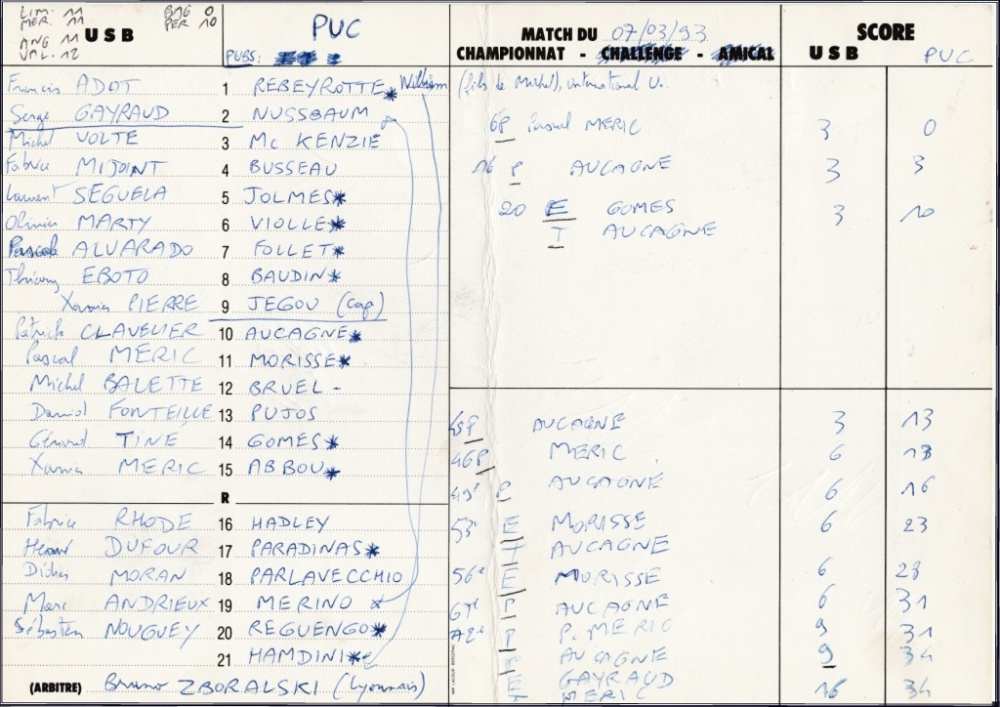 LIM. 11
MER. 11
ANG 11
VAL. 12
BAG 0
PER 10
USB
PUC
PUBS:
MATCH DU 07/03/93
CHAMPIONNAT - CHALLENGE - AMICAL
SCORE
USB PUC
Francis ADOT 1 REBEYROTTE* William (fils de Michel), international U.
Serge GAYRAUD 2 NUSSBAUM
6P Pascal MERIC 3 0
Michel VOLTE 3 Mc KENZIE
Fabrice MIJOINT 4 BUSSEAU
16 P AUCAGNE 3 3
Laurent SEGUELA 5 JOLMES*
20 E GOMES 3 10
Olivier MARTY 6 VIOLLE*
T AUCAGNE
Pascal ALVARADO 7 FOLLET*
Thierry EBOTO 8 BAUDIN*
Xavier PIERRE 9 JEGOU (cap)
Patrick CLAVELIER 10 AUCAGNE*
Pascal MERIC 11 MORISSE*
Michel BALETTE 12 BRUEL -
David FONTEILLE 13 PUJOS
AUCAGNE 3 13
Gérard TINE 14 GOMES*
46P MERIC 6 13
Xavier MERIC 15 ABBOU*
49e P AUCAGNE 6 16
R
Fabrice RHODE 16 HADLEY
53e E MORISSE 6 23
T AUCAGNE
DUFOUR 17 PARADINAS*
Didier MORAN 18 PARLAVECCHIO
56e E MORISSE 6 28
Marc ANDRIEUX 19 MERINO
P AUCAGNE 6 31
Sébastien NOUGUEY 20 REGUENGO*
72e P P. MERIC 9 31
21 HAMDINI*
AUCAGNE 9 34
E GAYRAUD
T MERIC 16 34
(ARBITRE) Bruno ZBORALSKI (Lyonnais)